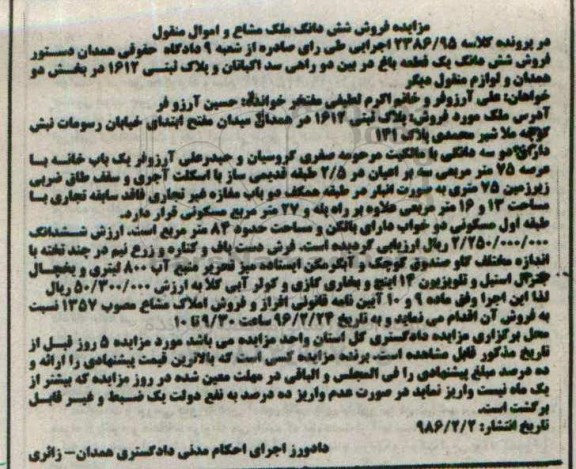 مزایده فروش شش دانگ ملک مشاع و اموال منقول
در پرونده کلاسه ۲۳۸۶/۹۵ اجرایی طی رای صادره از شعبه ۹ دادگاه حقوقی همدان دستور
فروش شش دانگ یک قطعه باغ در بین دو راهی سد اکباتان و پلاک ثبتی ۱۶۱۲ در بخش دو
همدان و لوازم منقول دیگر
خواهان: علی آرزوفر و خانم اکرم لطیفی مفتخر خوانده: حسین آرزو فر
آدرس ملک مورد فروش: پلاک ثبتی ۱۶۱۲ در همدان میدان مفتح ابتدای خیابان رسومات نبش
کوچه ملا شیر محمدی پلاک ۱۳۱
دارای دو سه دانگی با مالکیت مرحومه صغری گروسیان و حیدرعلی آرزوفر یک باب خانه با
عرصه ۷۵ متر مربعی سه بر اعیان در ۲/۵ طبقه قدیمی ساز با اسکلت آجری و سقف طاق ضربی
زیرزمین ۷۵ متری به صورت انبار در طبقه همکف دو باب مغازه غیر تجاری فاقد سابقه تجاری با
مساحت ۱۳ و ۱۶ متر مربعی علاوه بر راه پله و ۲۷ متر مربع مسکونی قرار دارد.
طبقه اول مسکونی دو خواب دارای بالکن و مساحت حدود ۸۳ متر مربع است. ارزش ششدانگ
۲/۲۵۰/۰۰۰/۰۰۰ ریال ارزیابی گردیده است. فرش دست باف و کناره و زرع نیم در چند تخته با
اندازه مختلف گاو صندوق کوچک و آبگرمکن ایستاده میز تحریر منبع آب ۸۰۰ لیتری و یخچال
جنرال استیل و تلویزیون ۱۴ اینچ و بخاری گازی و کولر آبی کلا به ارزش ۵۰/۳۰۰/۰۰۰ ریال
لذا این اجرا وفق ماده ۹ و ۱۰ آیین نامه قانونی افراز و فروش املاک مشاع مصوب ۱۳۵۷ نسبت
به فروش آن اقدام می نماید و به تاریخ ۹۶/۲/۲۴ ساعت ۹/۳۰ تا ۱۰
محل برگزاری مزایده دادگستری کل استان واحد مزایده می باشد مورد مزایده ۵ روز قبل از
تاریخ مذکور قابل مشاهده است. برنده مزایده کسی است که بالاترین قیمت پیشنهادی را ارائه و
ده درصد مبلغ پیشنهادی را فی المجلس و الباقی در مهلت معین شده در روز مزایده که بیشتر از
یک ماه نیست واریز نماید در صورت عدم واریز ده درصد به نفع دولت یک ضبط و غیر قابل
برگشت است.
تاریخ انتشار: ۹۸۶/۲/۲
دادورز اجرای احکام مدنی دادگستری همدان- زائری